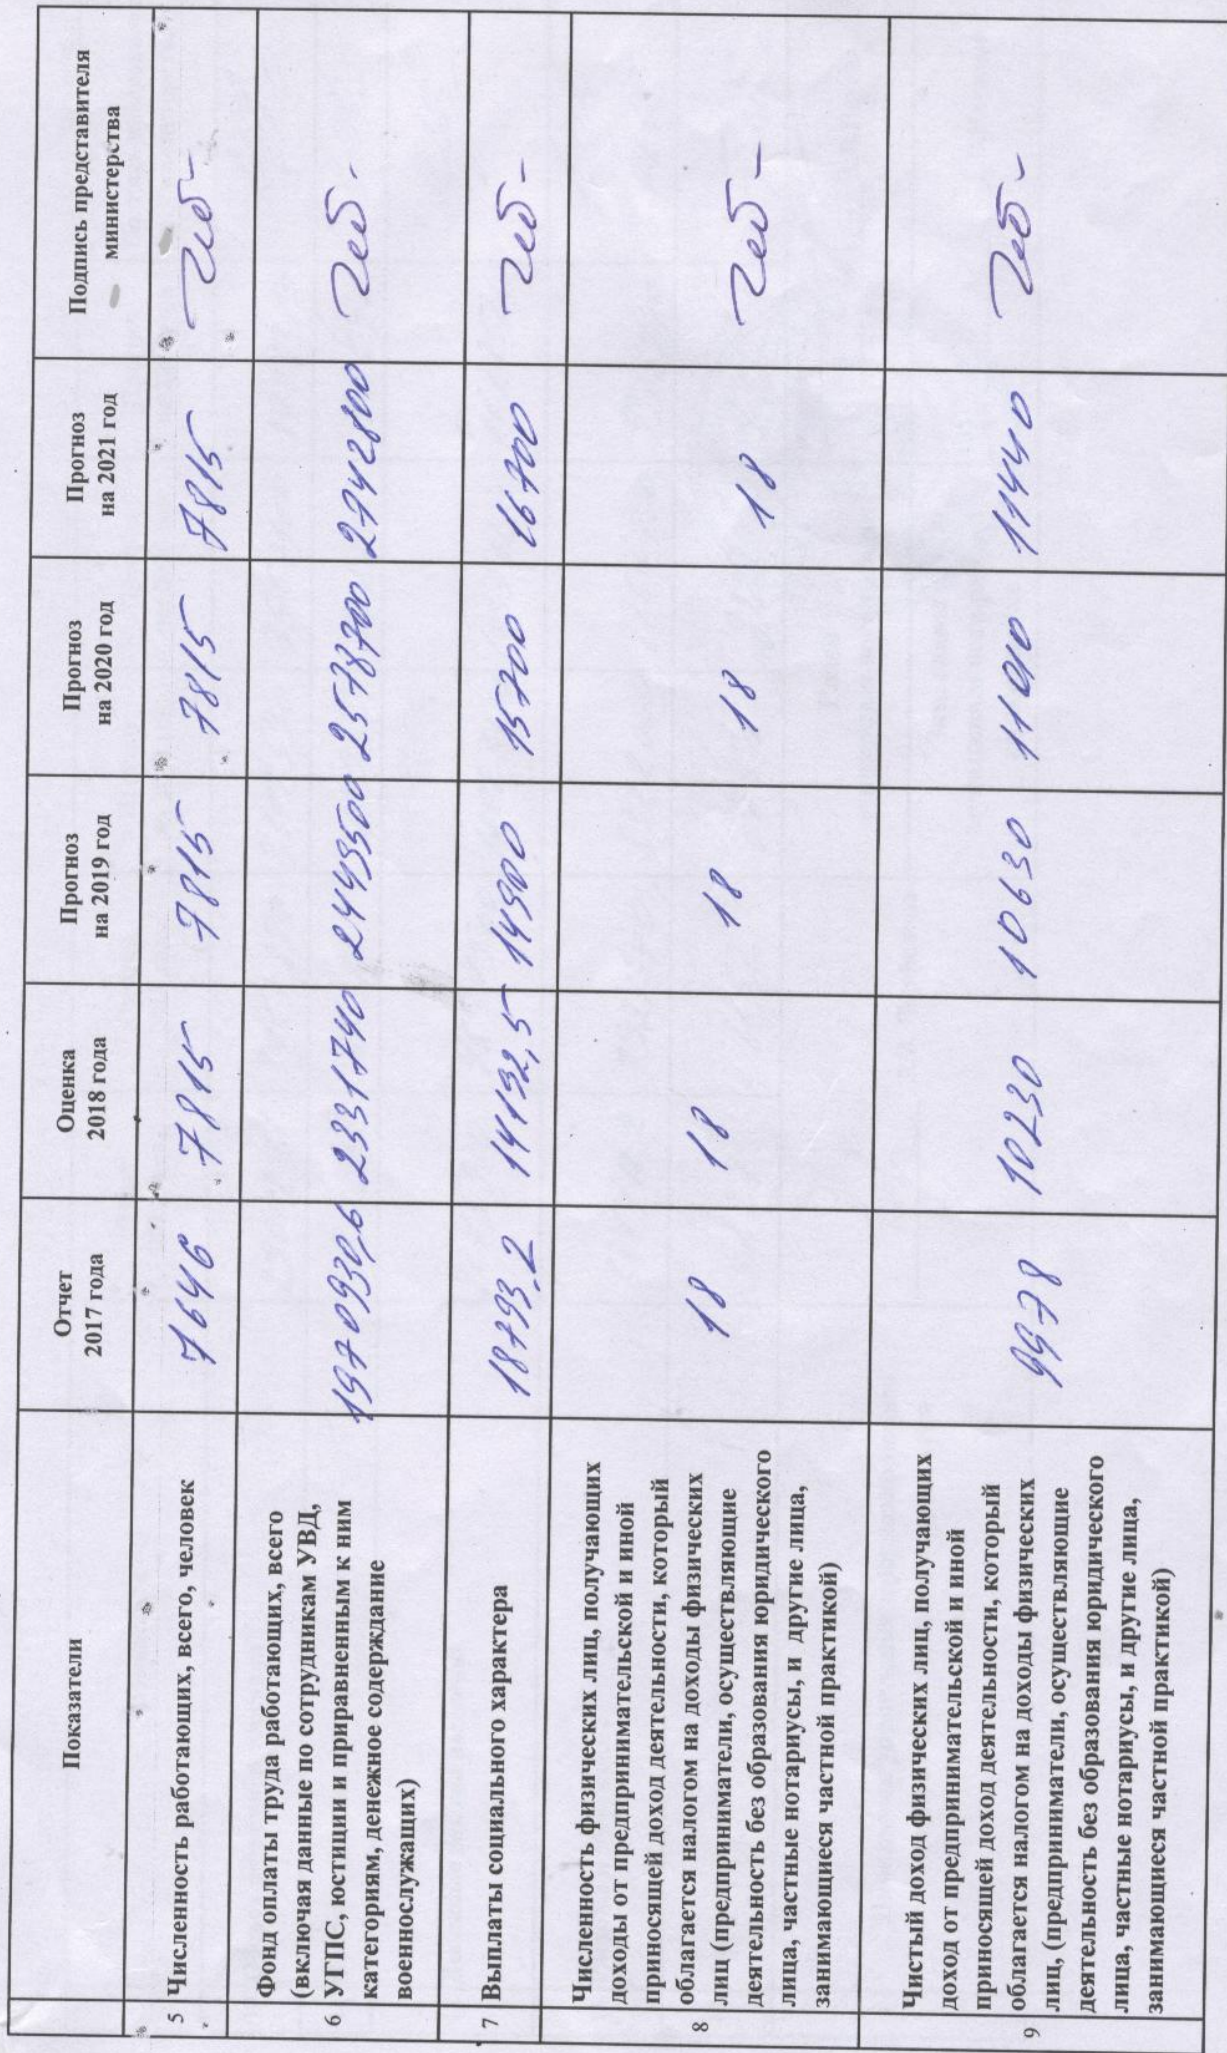 Показатели
Отчет
2017 года
Оценка
2018 года
Прогноз
на 2019 год
Прогноз
на 2020 год
Прогноз
на 2021 год
Подпись представителя
министерства
5
Численность работающих, всего, человек
7646
7815
7815
7815
7815
6
Фонд оплаты труда работающих, всего
(включая данные по сотрудникам УВД,
УГПС, юстиции и приравненным к ним
категориям, денежное содержание
военнослужащих)
1970930,6
2331740
2449500
2578700
2742800
7
Выплаты социального характера
18793,2
14192,5
14900
15700
16700
8
Численность физических лиц, получающих
доходы от предпринимательской и иной
приносящей доход деятельности, который
облагается налогом на доходы физических
лиц (предприниматели, осуществляющие
деятельность без образования юридического
лица, частные нотариусы, и другие лица,
занимающиеся частной практикой)
18
18
18
18
18
9
Чистый доход физических лиц, получающих
доход от предпринимательской и иной
приносящей доход деятельности, который
облагается налогом на доходы физических
лиц, (предприниматели, осуществляющие
деятельность без образования юридического
лица, частные нотариусы, и другие лица,
занимающиеся частной практикой)
9978
10230
10630
11010
11440